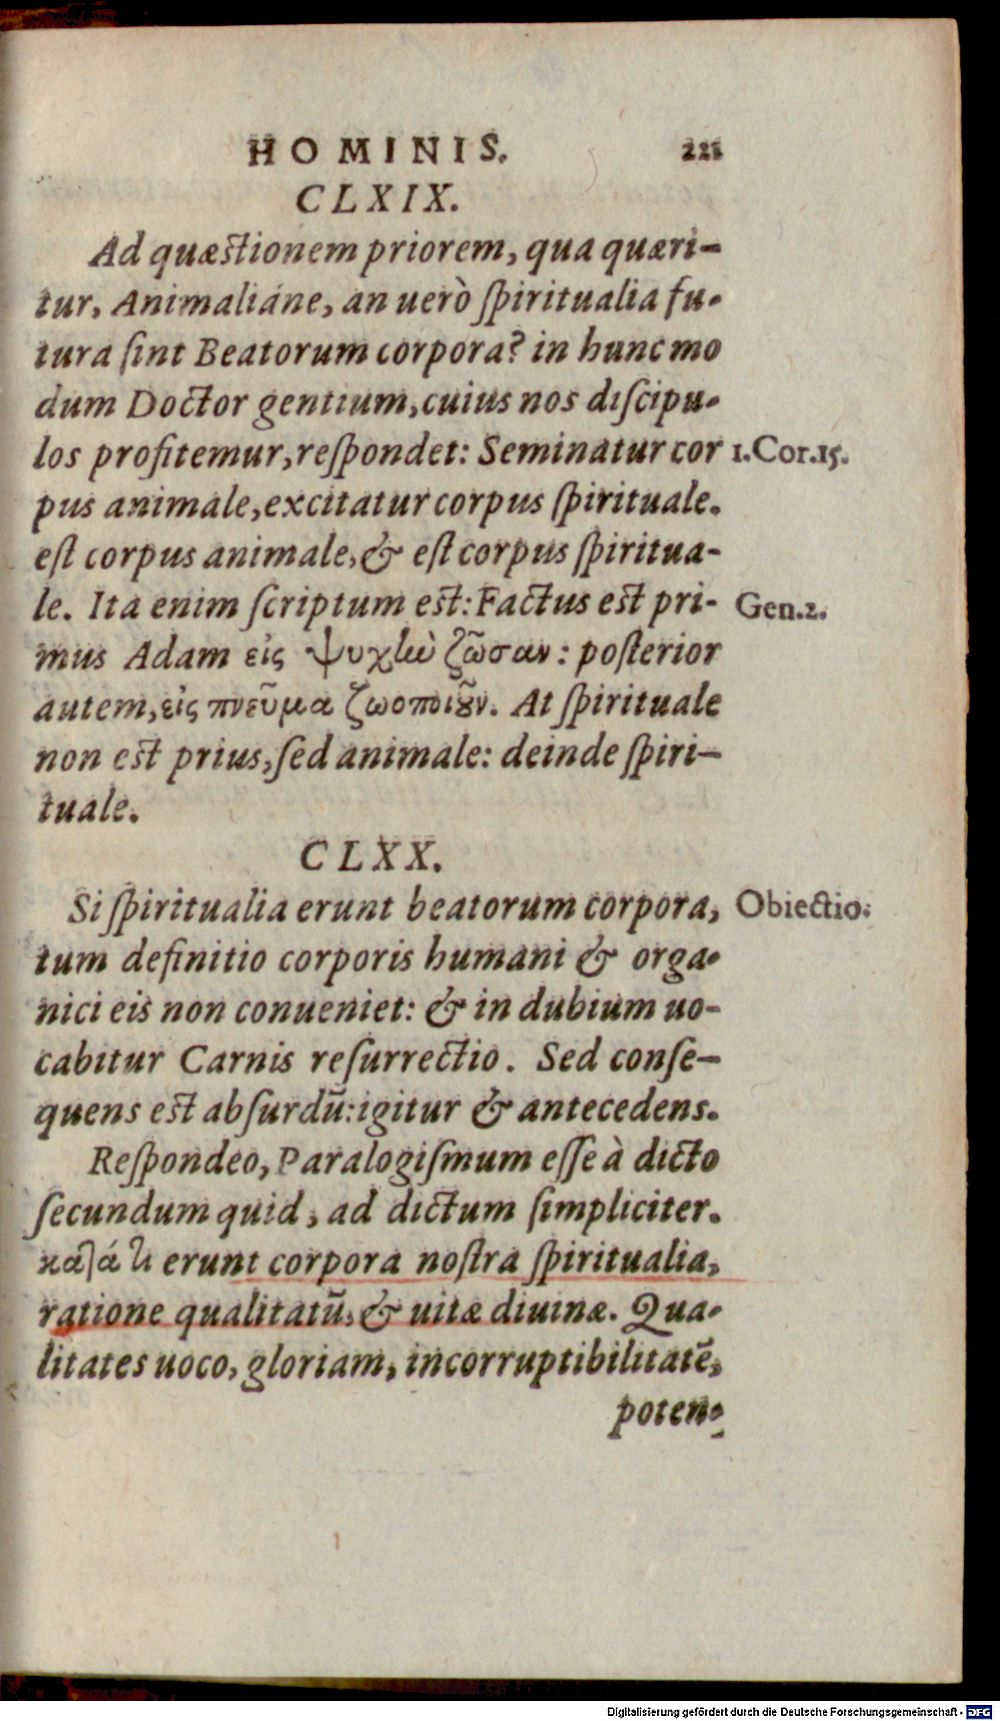 HOMINIS. 221
CLXIX.
Ad quæstionem priorem, qua quæri-
tur, Animaliáne, an uerò ſpiritualia fu-
tura ſint Beatorum corpora? in hunc mo
dum Doctor gentium, cuius nos diſcipu-
los profitemur, reſpondet: Seminatur cor 1.Cor.15.
pus animale, excitatur corpus ſpirituale.
eſt corpus animale, & eſt corpus ſpiritua-
le. Ita enim ſcriptum est: Factus est pri- Gen.2.
mus Adam εἰς ψυχὴν ζῶσαν: poſterior
autem, εἰς πνεῦμα ζωοποιοῦν. At ſpirituale
non est prius, ſed animale: deinde ſpiri-
tuale.
CLXX.
Si ſpiritualia erunt beatorum corpora, Obiectio:
tum definitio corporis humani & orga-
nici eis non conueniet: & in dubium uo-
cabitur Carnis reſurrectio. Sed conſe-
quens est abſurdū: igitur & antecedens.
Reſpondeo, Paralogiſmum eſſe à dicto
ſecundum quid, ad dictum ſimpliciter.
κατά τι erunt corpora noſtra ſpiritualia,
ratione qualitatū, & uitæ diuinæ. Qua-
litates uoco, gloriam, incorruptibilitatē,
poten-
Digitalisierung gefördert durch die Deutsche Forschungsgemeinschaft - DFG